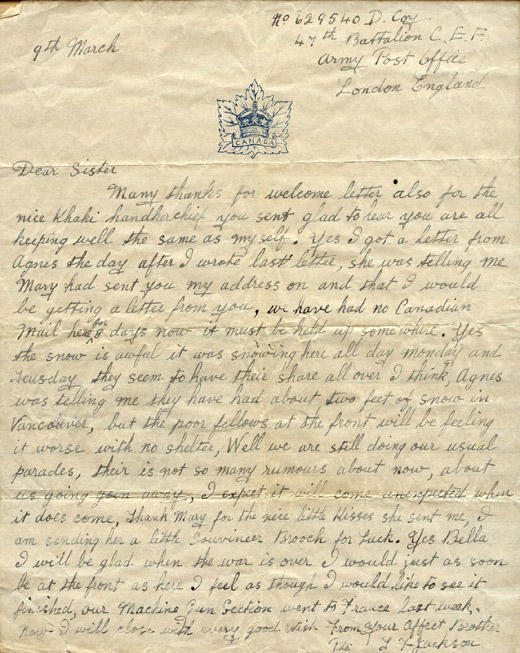 No 629540 D. Coy
47th Battalion C.E.F.
Army Post Office
London England
9th March
CANADA
Dear Sister
Many thanks for welcome letter also for the
nice Khaki handkerchief you sent glad to hear you are all
keeping well the same as myself. Yes I got a letter from
Agnes the day after I wrote last letter, she was telling me
Mary had sent you my address on and that I would
be getting a letter from you, we have had no Canadian
Mail here for days now it must be held up somewhere. Yes
the snow is awful it was snowing here all day monday and
Teusday they seem to have their share all over I think, Agnes
was telling me they have had about two feet of snow in
Vancouver, but the poor fellows at the front will be feeling
it worse with no shelter, Well we are still doing our usual
parades, their is not so many rumours about now, about
us going away, I expect it will come unexpected when
it does come, Thank Mary for the nice little Kisses she sent me, I
am sending her a little Souvineer Brooch for Luck. Yes Bella
I will be glad when the war is over I would just as soon
be at the front as here I feel as though I would like to see it
finished, our Machine Gun Section went to France last week.
Now I will close with every good wish From Your Affect Brother
Jackson